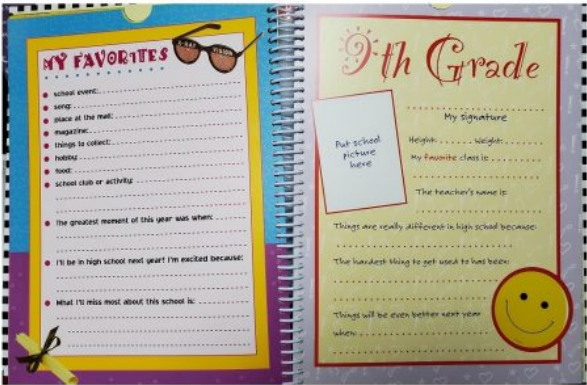 MY FAVORITES
X-RAY VISION
school event:
song:
place at the mall:
magazine:
things to collect:
hobby:
food:
school club or activity:
The greatest moment of this year was when:
I'll be in high school next year! I'm excited because:
What I'll miss most about this school is:
9th Grade
My signature
Put school
picture
here
Height: Weight:
My favorite class is:
The teacher's name is:
Things are really different in high school because:
The hardest thing to get used to has been:
Things will be even better next year
when: